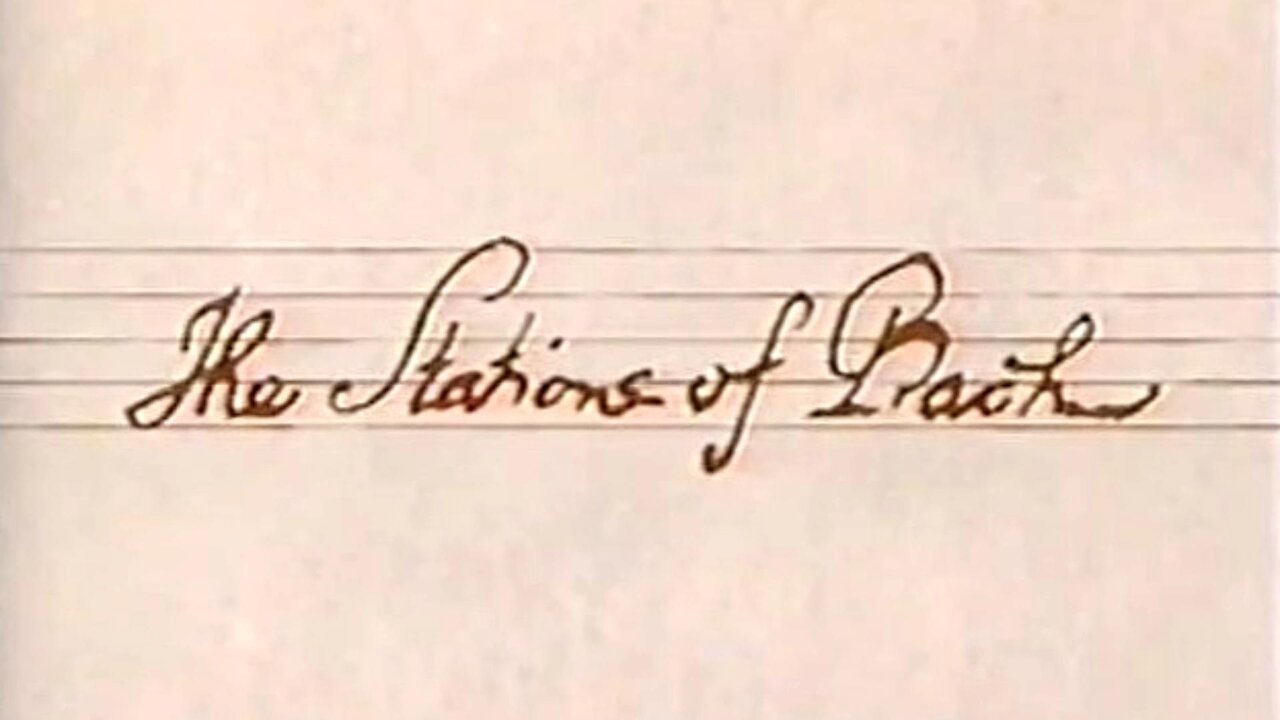 The Stations of Bach